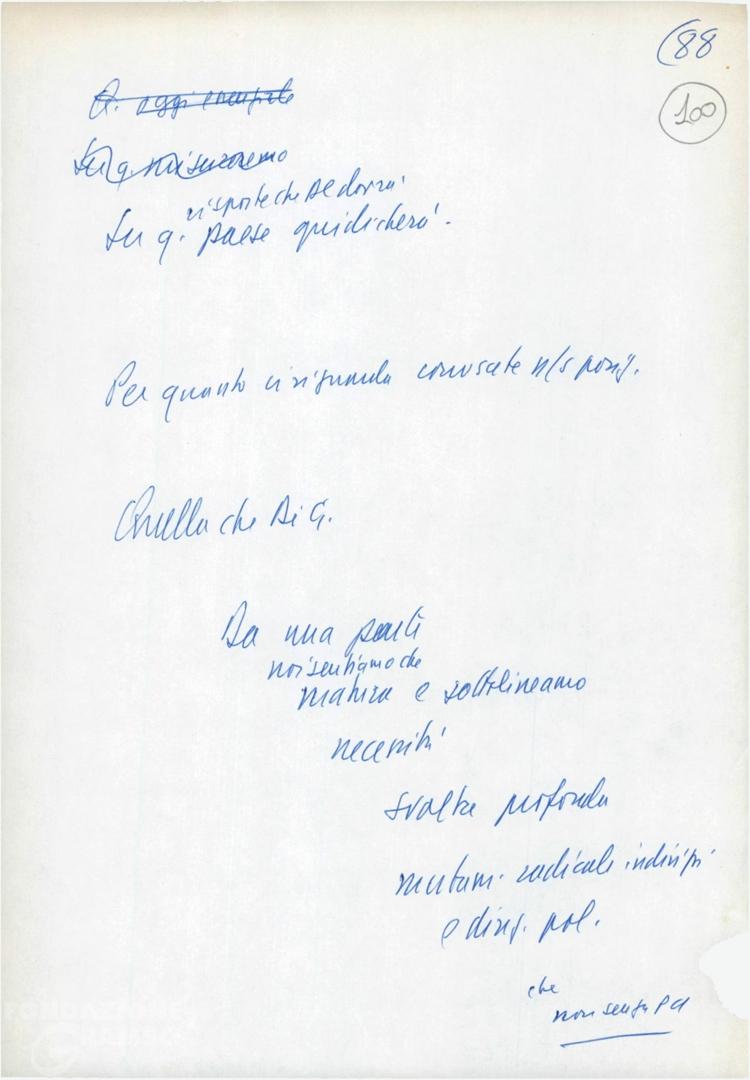 (88
100
Q. oggi essenziale
Su q. misureremo
risposte che DC dovrà
Su q. paese giudicherà.
Per quanto ci riguarda conoscete n/s posiz.
Quella che di G.
Da una parte
noi sentiamo che
matura e sottolineamo
necessità
svolta profonda
mutam. radicale indirizzi
e direz. pol.
che
non senza PCI
FONDAZIONE
GRAMSCI